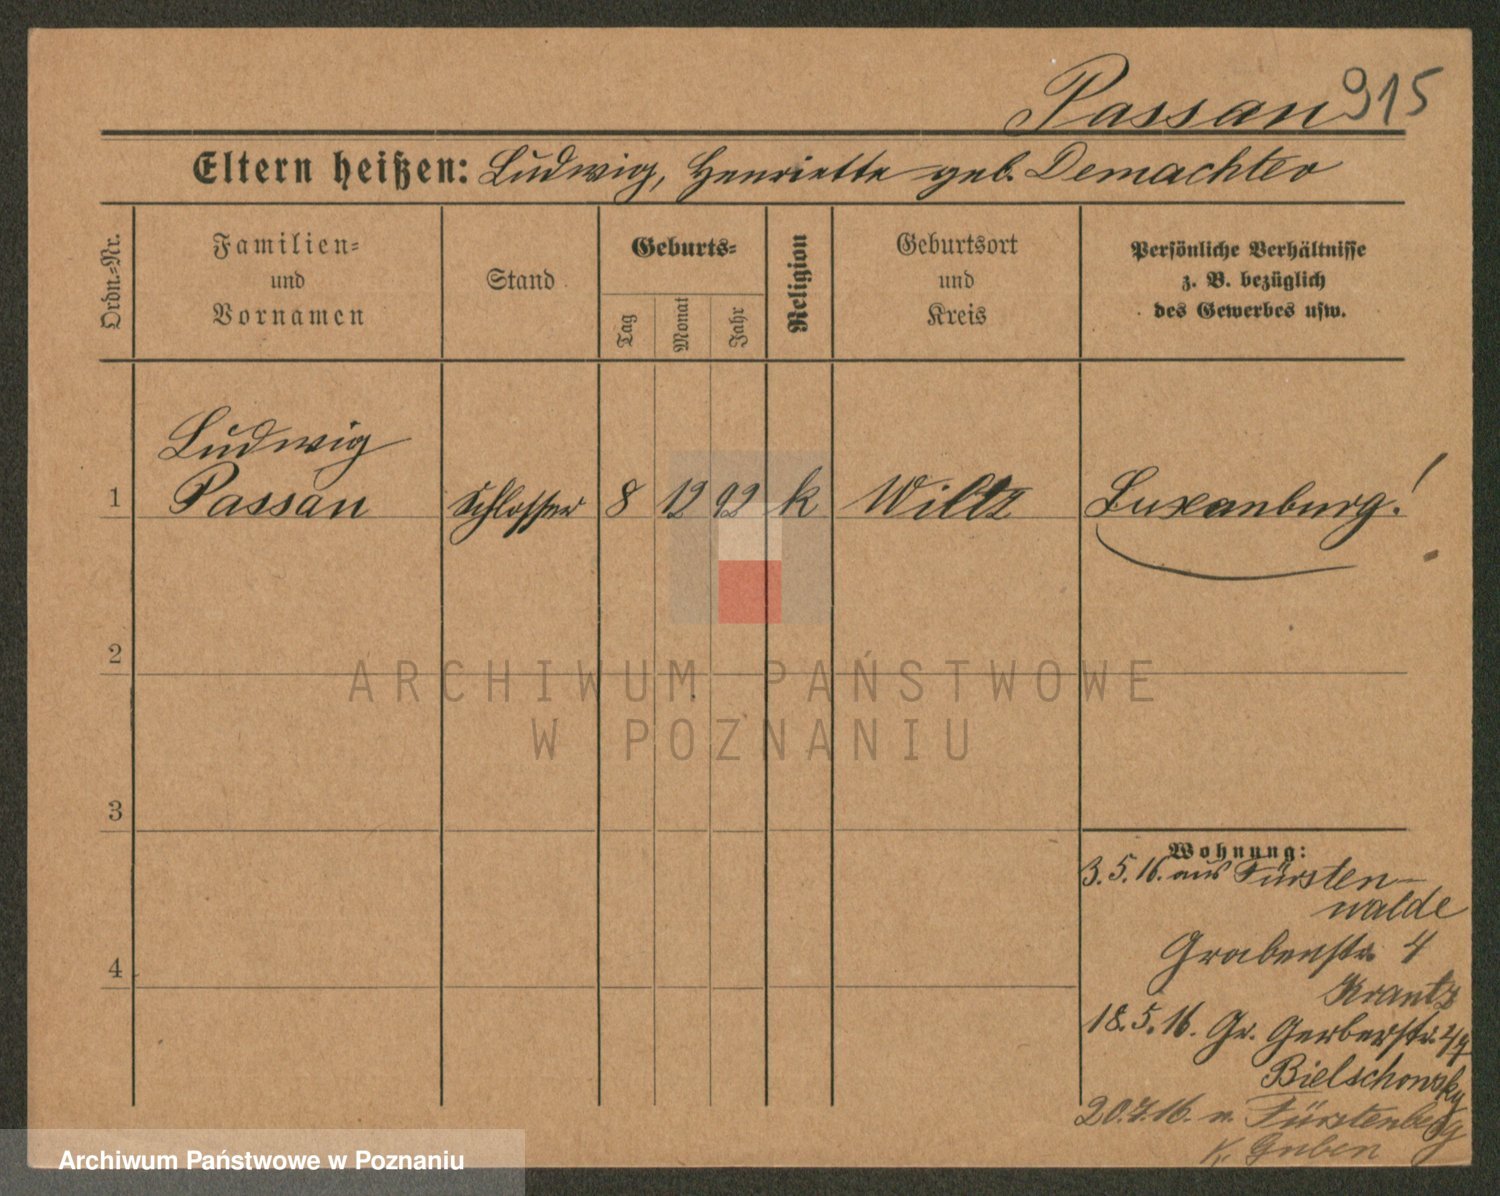 Passan 915
Eltern heißen: Ludwig, Henriette geb. Demachter
Ordn.=Nr.
Familien=
und
Vornamen
Stand
Geburts=
Tag
Monat
Jahr
Religion
Geburtsort
und
Kreis
Persönliche Verhältnisse
z. B. bezüglich
des Gewerbes usw.
Ludwig
1 Passan Schlosser 8 12 92 k Wiltz Luxenburg!
2
ARCHIWUM PAŃSTWOWE
W POZNANIU
3
Wohnung:
3.5.16. aus Fürsten-
walde
4
Grabenstr. 4
Krantz
18.5.16. Gr. Gerberstr.
Bielschowsky
20.7.16. n. Fürstenberg
K. Guben
Archiwum Państwowe w Poznaniu